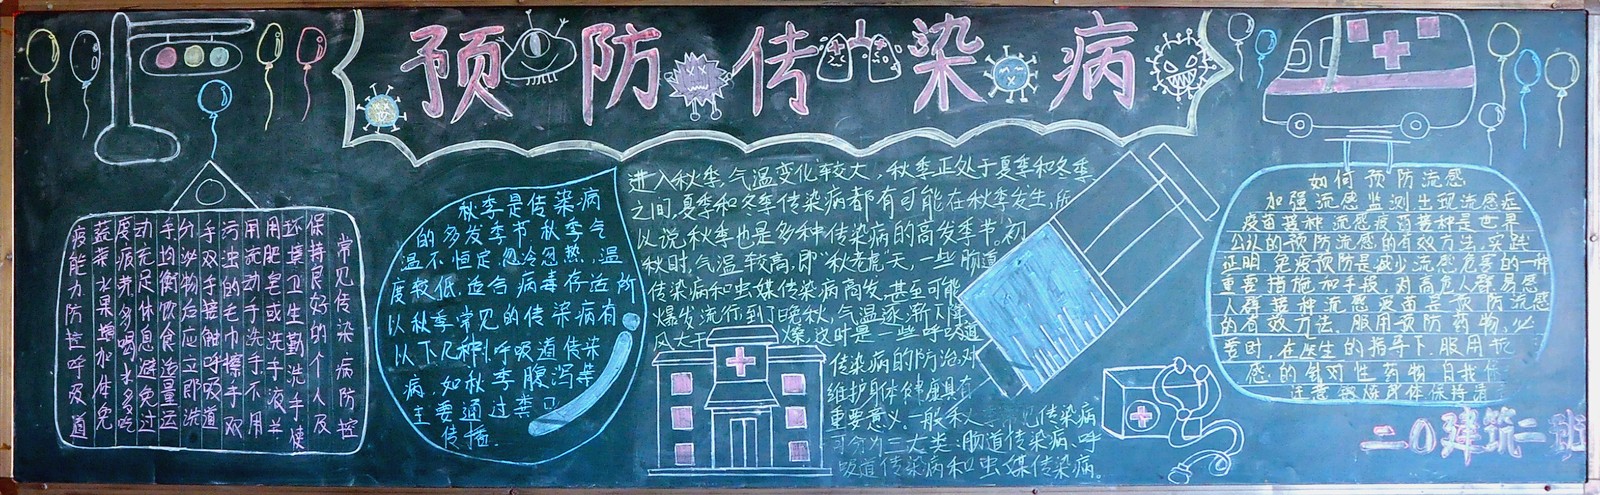 预防传染病
常见传染病防控
保持良好的个人及
环境卫生勤洗手使
用肥皂或洗手液并
用流动手洗手不用
污浊的毛巾擦手双
手双手接触呼吸道
分泌物后应立即洗
手均衡饮食适量运
动充足休息避免过
度疲劳多喝水多吃
蔬菜水果增加体免
疫能力防控呼吸道
秋季是传染病
的多发季节,秋季气
温不恒定,忽冷忽热,温
度较低,适合病毒存活,所
以秋季常见的传染病有
以下几种:呼吸道传染
病,如秋季腹泻等
主要通过粪口
传播.
进入秋季,气温变化较大,秋季正处于夏季和冬季
之间,夏季和冬季传染病都有可能在秋季发生,所
以说秋季也是多种传染病的高发季节。初
秋时,气温较高,即“秋老虎”天,一些肠道
传染病和虫媒传染病高发,甚至可能
爆发流行到了晚秋,气温逐渐下降
风大干燥,这时是一些呼吸道
传染病的防治,对
维护身体健康具有
重要意义.一般秋季常见传染病
可分为三大类:肠道传染病、呼
吸道传染病和虫媒传染病。
如何预防流感
加强流感监测出现流感症
疫苗接种流感疫苗接种是世界
公认的预防流感的有效方法,实践
证明,免疫预防是减少流感危害的一种
重要措施和手段,对高危人群易感
人群接种流感疫苗是预防流感
的有效方法.服用预防药物,必
要时,在医生的指导下,服用抗
感的针对性药物自我
注意锻炼身体保持清
二〇建筑二班